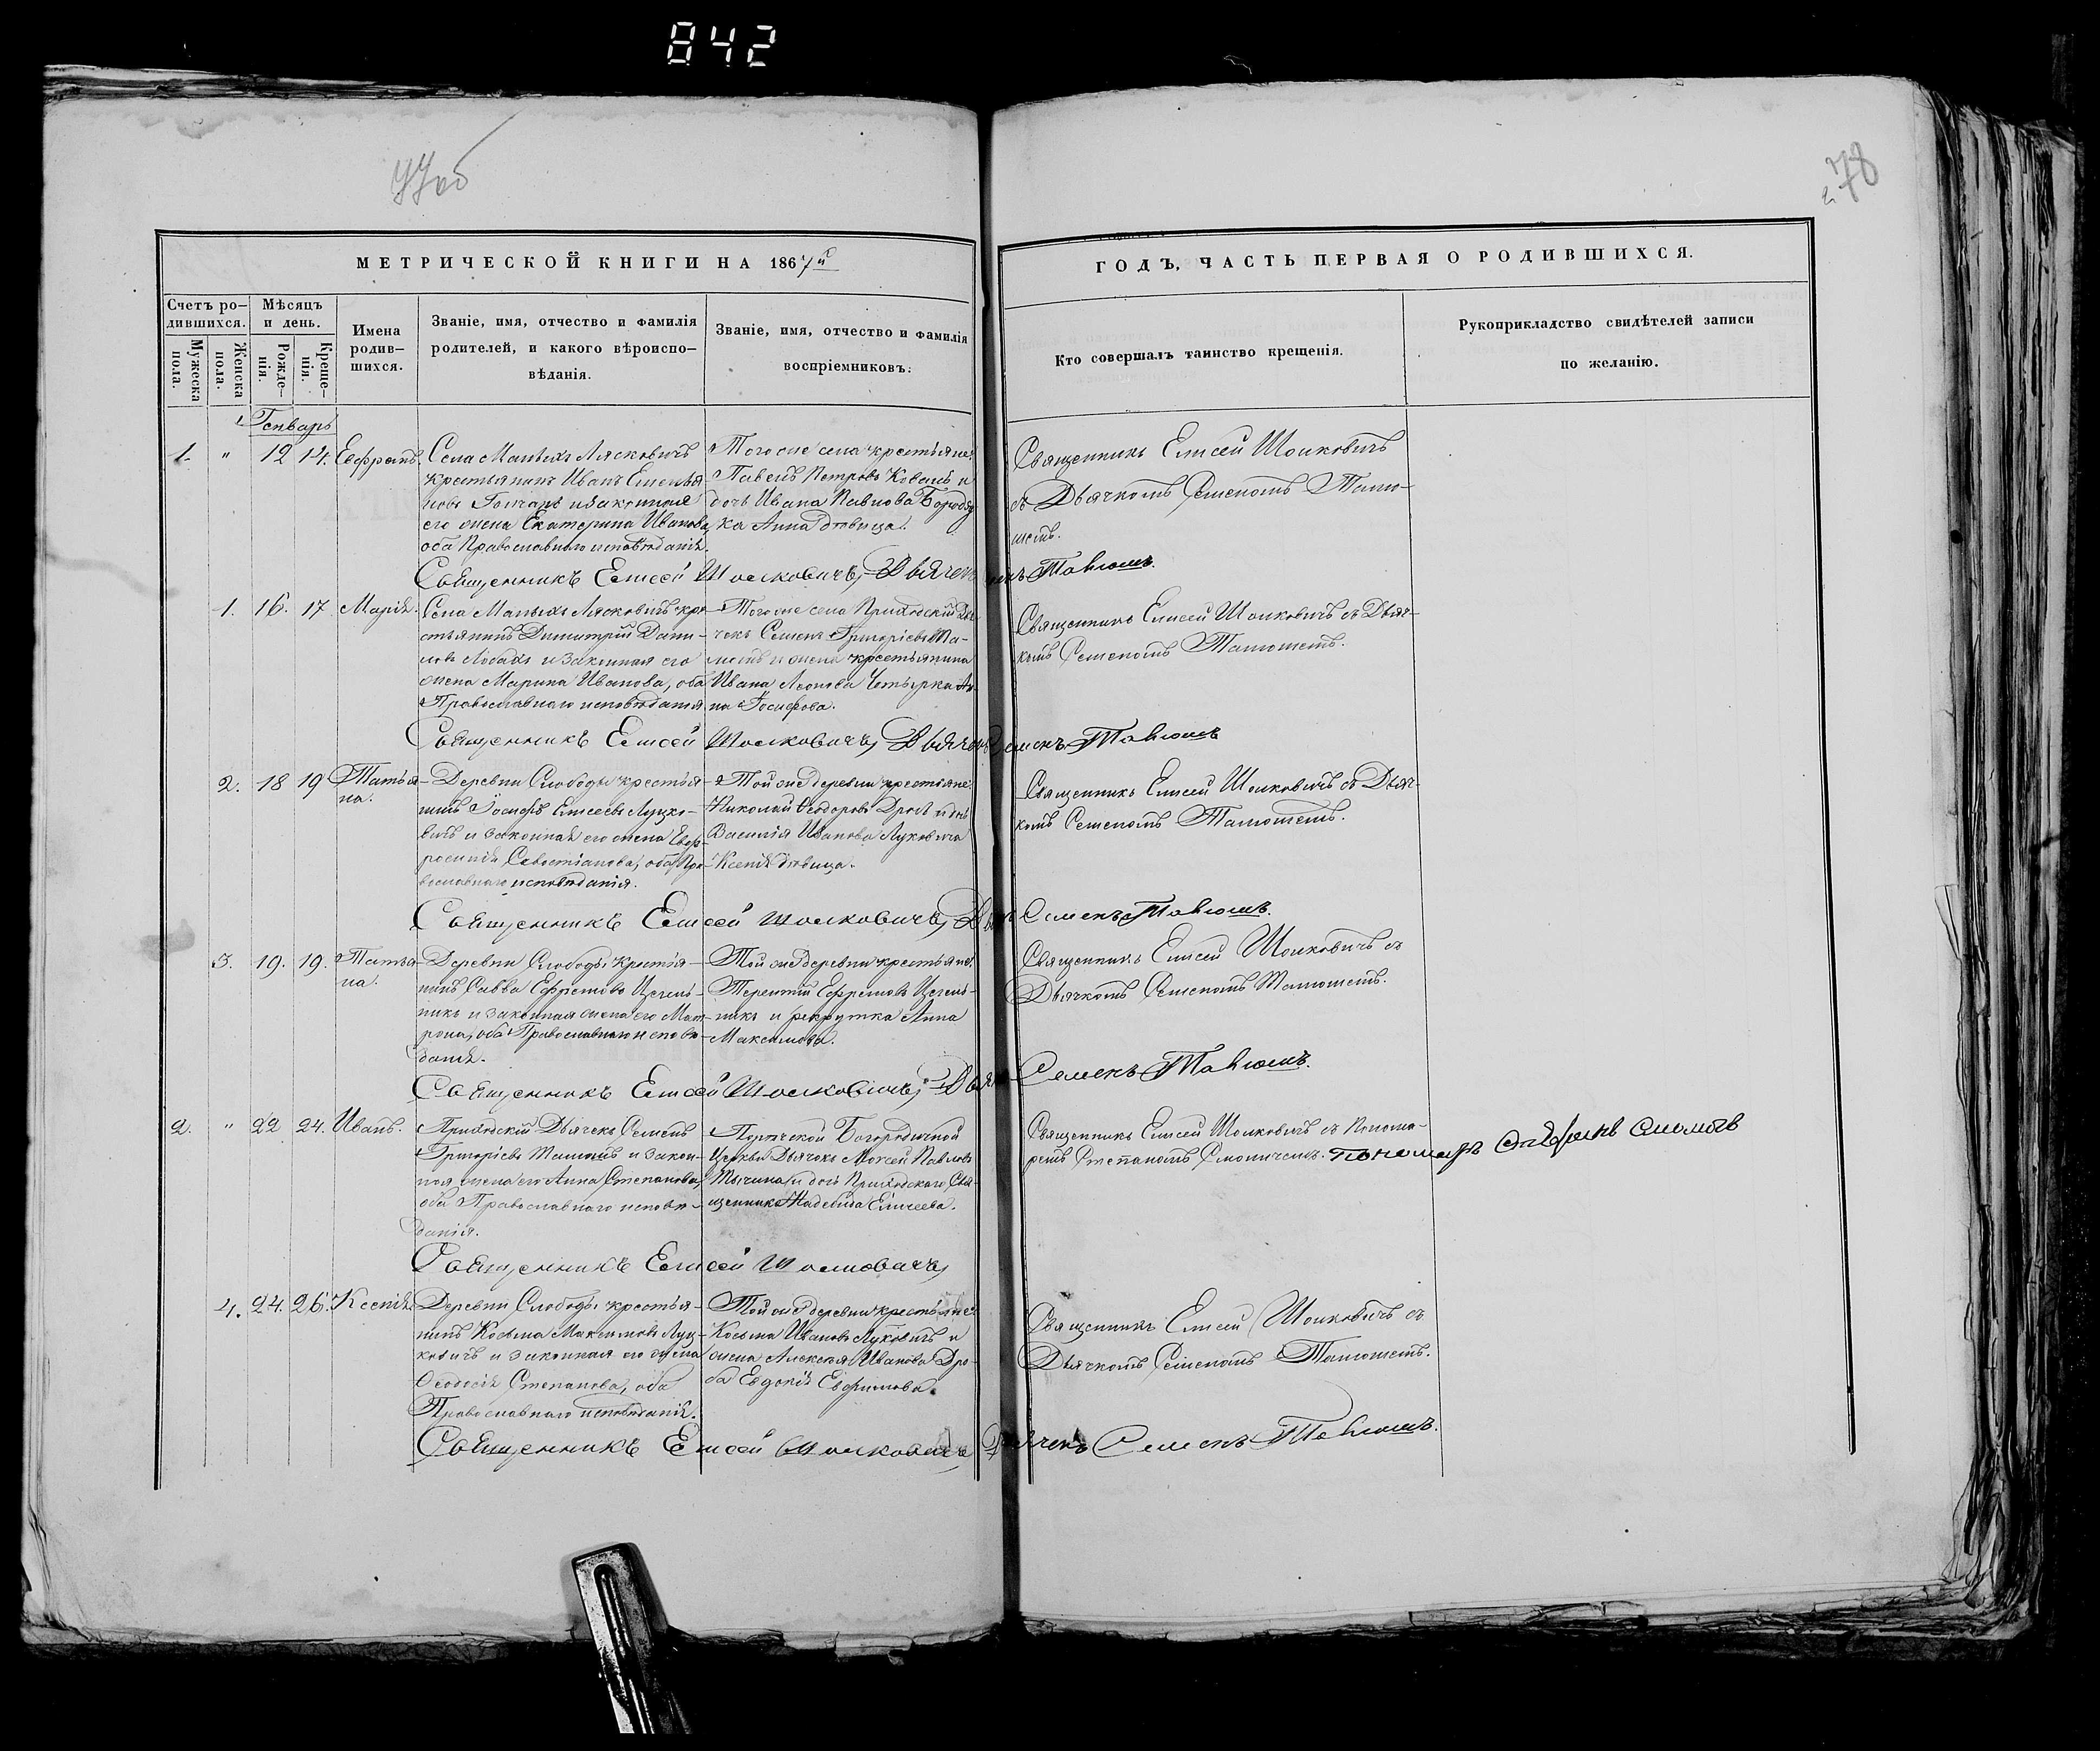 842
77об
78
МЕТРИЧЕСКОЙ КНИГИ НА 1867й
ГОДЪ, ЧАСТЬ ПЕРВАЯ О РОДИВШИХСЯ.
Счетъ ро-
дившихся.
Мужеска
пола.
Женска
пола.
Мѣсяцъ
и день.
Рожде-
нія.
Креще-
нія.
Имена
родив-
шихся.
Званіе, имя, отчество и фамилія
родителей, и какого вѣроиспо-
вѣданія.
Званіе, имя, отчество и фамилія
воспріемниковъ.
Кто совершалъ таинство крещенія.
Рукоприкладство свидѣтелей записи
по желанію.
Генварь
1. " 12 14. Ефремъ.
Села Малыхъ Лясковичъ
крестьянинъ Иванъ Емелья
новъ Гончаръ и законная
его жена Екатерина Иванова,
оба Православнаго исповѣданія.
Того же села крестьяне:
Павелъ Петровъ Коваль и
дочь Ивана Павлова
ка Анна дѣвица.
Священникъ Елисей Шолковичъ
съ Дьячкомъ Семеномъ
Священникъ Елисей Шолковичъ, Дьячекъ
1. 16. 17 Марія.
Села Малыхъ Лясковичъ кре
стьянинъ Димитрій Дани-
ловъ и законная его
жена Марина Иванова, оба
Православнаго исповѣданія.
Того же села Приходскій Дья
чекъ Семенъ Григорьевъ
и жена крестьянина
Ивана Леонова Четырка Ан-
на Іосифова.
Священникъ Елисей Шолковичъ съ Дьяч-
комъ Семеномъ
Священникъ Елисей Шолковичъ, Дьячекъ Семенъ
2. 18 19 Татья
на.
Деревни Слободы крестья-
нинъ Іосифъ Елисеевъ Луцко-
вичъ и законная его жена Евф-
росинія Севостіанова, оба Пра-
вославнаго исповѣданія.
Той же деревни крестьяне:
Николай Ѳеодоровъ и дочь
Василія Иванова Луковича
Ксенія дѣвица.
Священникъ Елисей Шолковичъ съ Дьяч-
комъ Семеномъ
Священникъ Елисей Шолковичъ, Семенъ
3. 19. 19. Татья
на.
Деревни Слободы крестья-
нинъ Савва Ефремовъ
никъ и законная жена его Мат-
рона, оба Православнаго исповѣ-
данія.
Той же деревни крестьяне:
Терентій Ефремовъ
никъ и рекрутка Анна
Максимова.
Священникъ Елисей Шолковичъ съ
Дьячкомъ Семеномъ
Священникъ Елисей Шолковичъ, Семенъ
2. " 22 24. Иванъ.
Приходскій Дьячекъ Семенъ
Григорьевъ и закон-
ная жена его Анна Степанова,
оба Православнаго исповѣ-
данія.
Богородичной
церкви Дьячекъ Моисей Павловъ
и дочь Приходскаго Свя-
щенника Надежда Елисеева.
Священникъ Елисей Шолковичъ съ Понома-
ремъ Степаномъ
Пономарь
Священникъ Елисей Шолковичъ,
4. 24. 26. Ксенія.
Деревни Слободы крестья-
нинъ Косьма Максимовъ Луц-
ковичъ и законная его жена
Ѳеодосія Степанова, оба
Православнаго исповѣданія.
Той же деревни крестьяне:
Косьма Ивановъ Луковичъ и
жена Алексѣя Иванова Дро-
ба Евдокія Евфимова.
Священникъ Елисей Шолковичъ съ
Дьячкомъ Семеномъ
Священникъ Елисей Шолковичъ Дьячекъ Семенъ